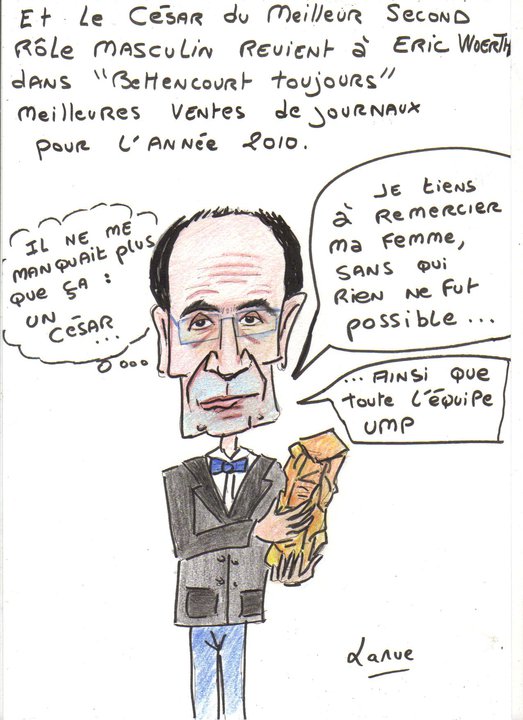 Et le César du Meilleur Second
Rôle masculin revient à Eric Woerth
dans "Bettencourt toujours"
meilleures ventes de journaux
pour l'année 2010.
Il ne me
manquait plus
que ça :
un
César...
Je tiens
à remercier
ma femme,
sans qui
rien ne fut
possible...
...Ainsi que
toute l'équipe
UMP
Larue